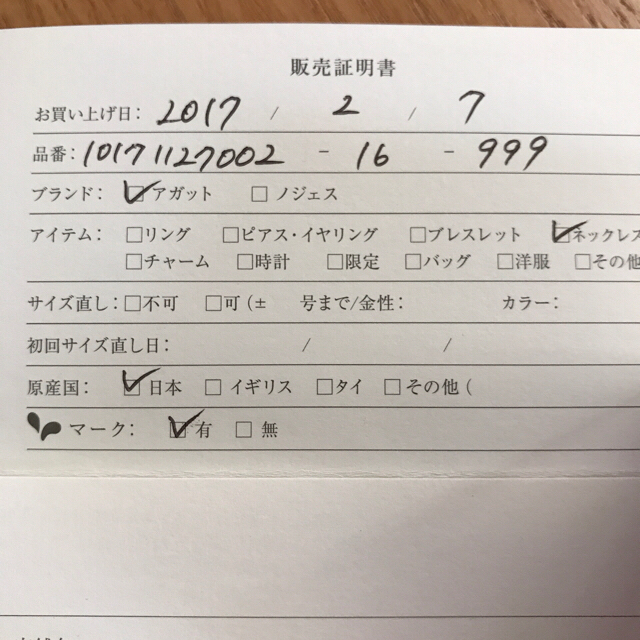 販売証明書
お買い上げ日: 2017 / 2 / 7
品番: 10171127002 - 16 - 999
ブランド: ☑アガット □ノジェス
アイテム: □リング □ピアス・イヤリング □ブレスレット ☑ネックレス
□チャーム □時計 □限定 □バッグ □洋服 □その他
サイズ直し: □不可 □可(± 号まで/金性: カラー:
初回サイズ直し日: / /
原産国: ☑日本 □イギリス □タイ □その他(
マーク: ☑有 □無